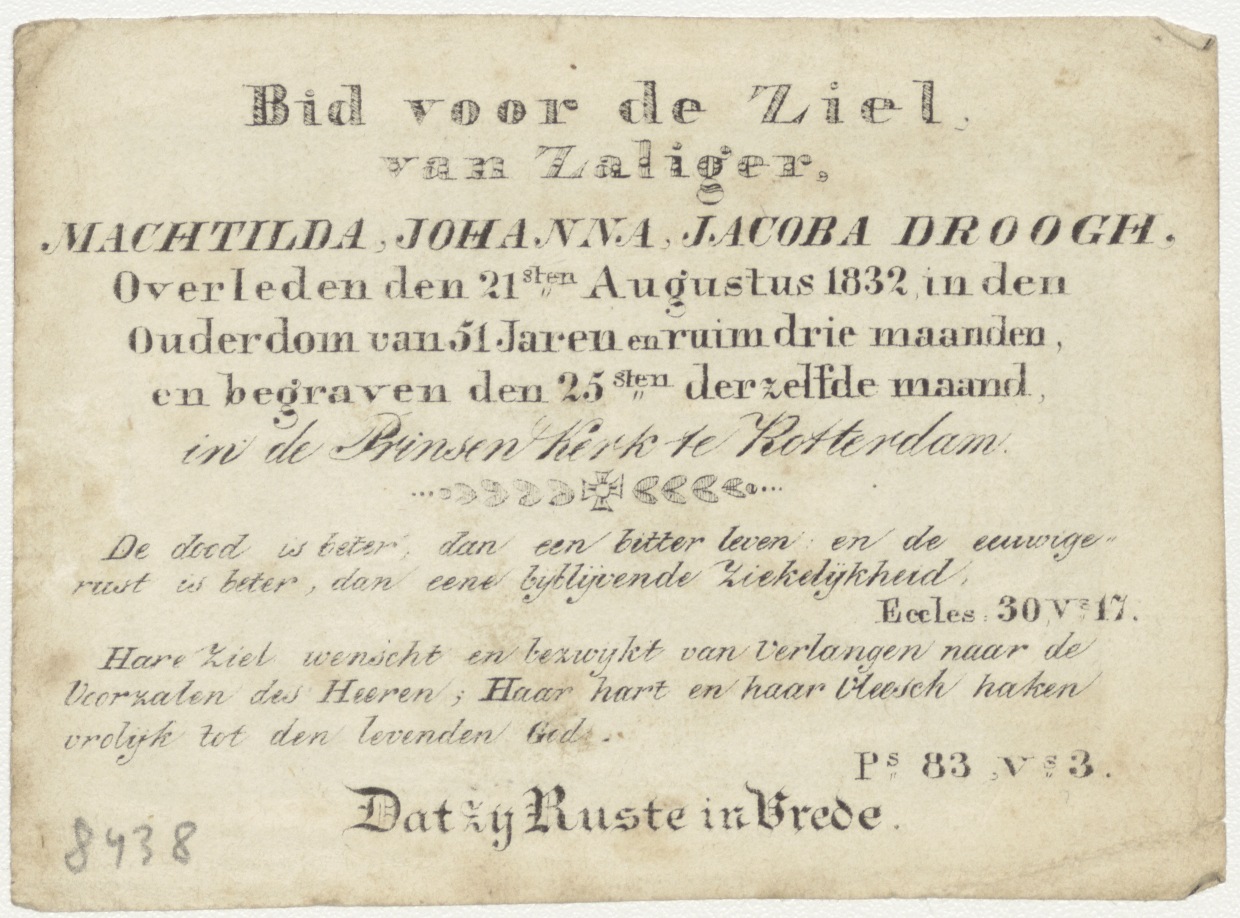 Bid voor de Ziel,
van Zaliger,
MACHTILDA, JOHANNA, JACOBA DROOGH.
Overleden den 21sten Augustus 1832, in den
Ouderdom van 51 Jaren en ruim drie maanden,
en begraven den 25sten derzelfde maand,
in de Prinsen Kerk te Rotterdam.
De dood is beter, dan een bitter leven en de eeuwige-
rust is beter, dan eene byblijvende Ziekelijkheid.
Eccles. 30, Vs 17.
Hare Ziel wenscht en bezwykt van Verlangen naar de
Voorzalen des Heeren; Haar hart en haar Vleesch haken
vrolijk tot den levenden God.
Ps 83, Vs 3.
Dat zy Ruste in Vrede.
8438